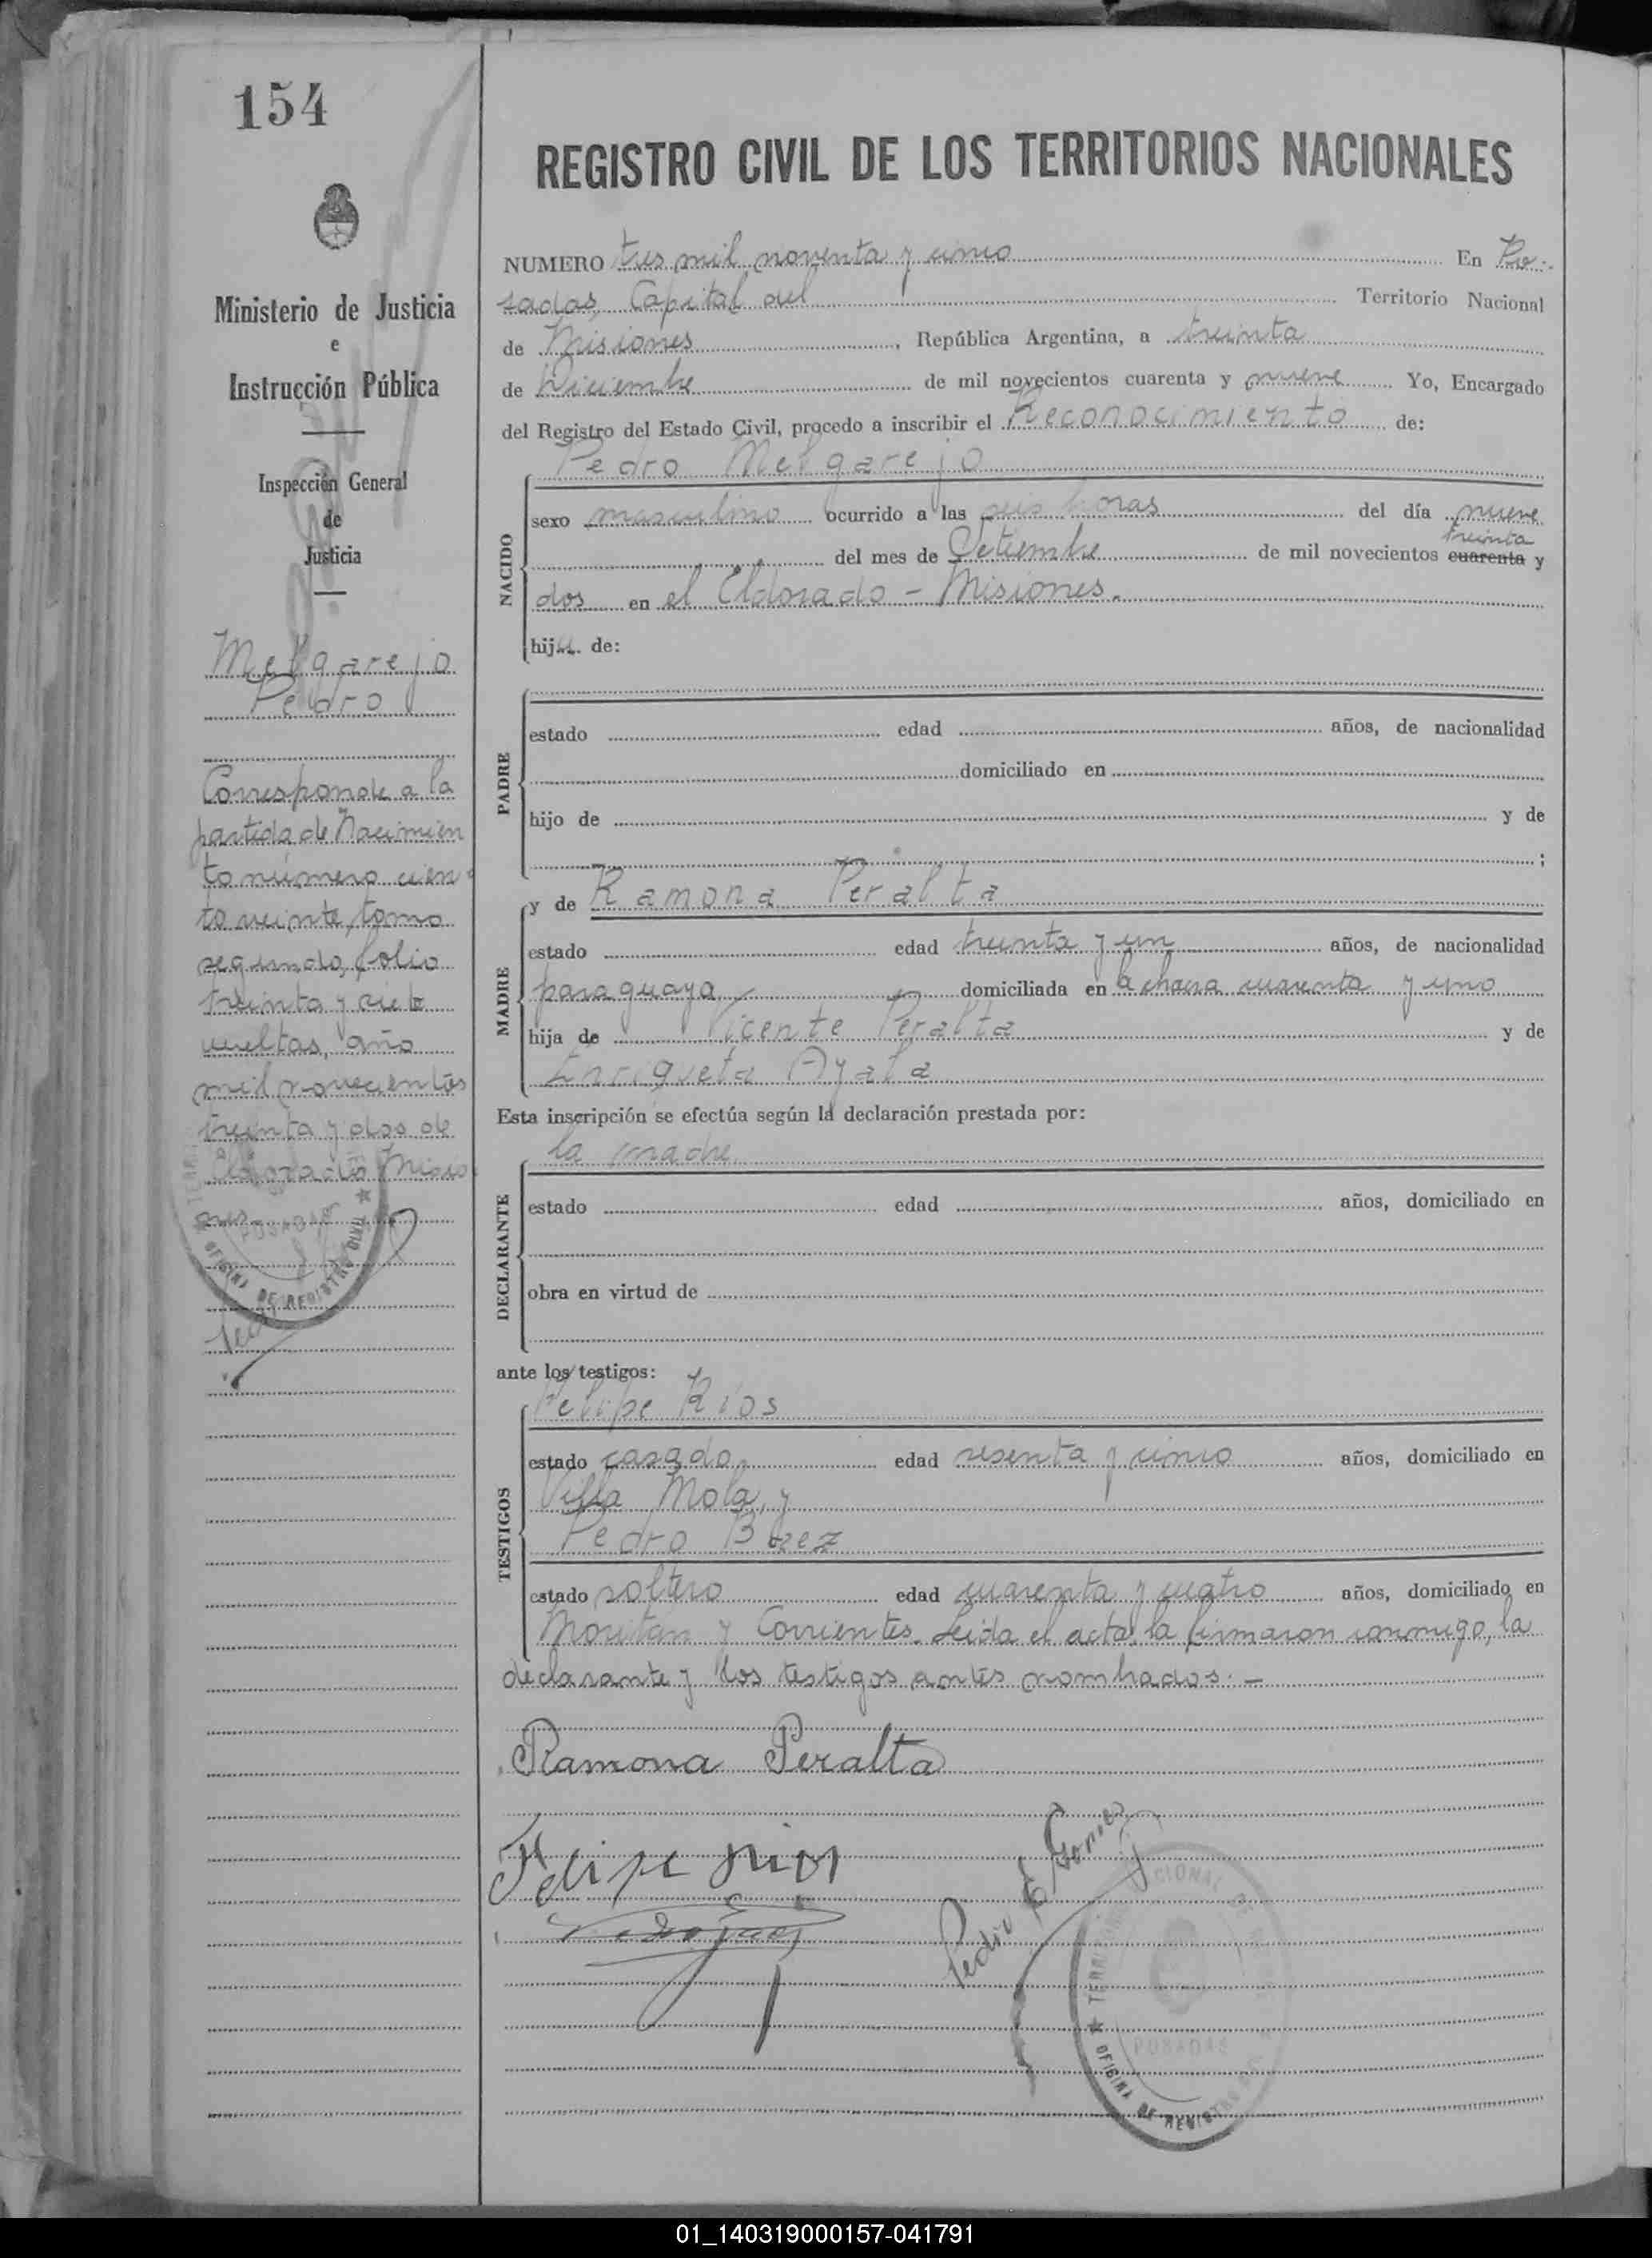 154
Ministerio de Justicia
e
Instrucción Pública
Inspección General
de
Justicia
Melgarejo
Pedro
Corresponde a la
partida de Nacimien
to número cien
to veinte, tomo
segundo, folio
treinta y siete
vueltas, año
mil novecientos
treinta y dos de
Eldorado Misio
nes
POSADAS
OFICINA DE REGISTRO CIVIL
REGISTRO CIVIL DE LOS TERRITORIOS NACIONALES
NUMERO tres mil noventa y cinco En Po-
sadas, Capital del Territorio Nacional
de Misiones, República Argentina, a treinta
de Diciembre de mil novecientos cuarenta y nueve Yo, Encargado
del Registro del Estado Civil, procedo a inscribir el Reconocimiento de:
Pedro Melgarejo
NACIDO
sexo masculino ocurrido a las seis horas del día nueve
treinta
del mes de Setiembre de mil novecientos cuarenta y
dos en el Eldorado - Misiones.
hij de:
PADRE
estado edad años, de nacionalidad
domiciliado en
hijo de y de
;
y de Ramona Peralta
MADRE
estado edad treinta y un años, de nacionalidad
paraguaya domiciliada en la chacra cuarenta y uno
hija de Vicente Peralta y de
Enriqueta Ayala
Esta inscripción se efectúa según la declaración prestada por:
la madre
DECLARANTE
estado edad años, domiciliado en
obra en virtud de
ante los testigos:
Felipe Ríos
TESTIGOS
estado casado, edad sesenta y cinco años, domiciliado en
Villa Mola, y
Pedro Baez
estado soltero edad cuarenta y cuatro años, domiciliado en
Moritán y Corrientes. Leida el acta, la firmaron conmigo, la
declarante y los testigos antes nombrados. -
Ramona Peralta
Felipe Rios
Pedro Gomez
POSADAS
OFICINA DE REGISTRO
01_140319000157-041791